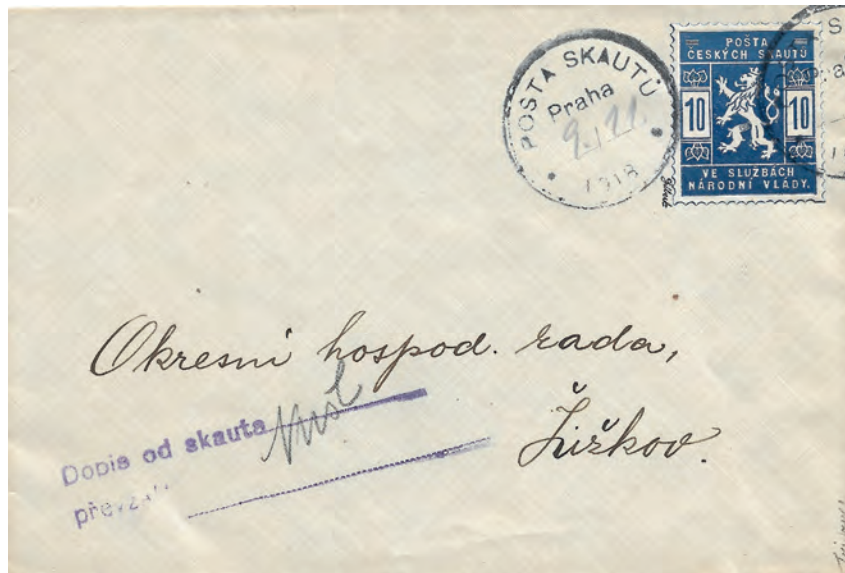 POŠTA SKAUTŮ
Praha
9./11.
1918
POŠTA
ČESKÝCH SKAUTŮ
10 10
VE SLUŽBÁCH
NÁRODNÍ VLÁDY.
S
Pra
Okresní hospod. rada,
Žižkov.
Dopis od skauta